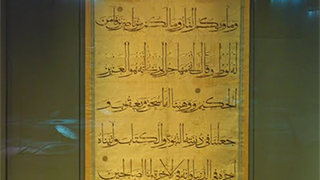 ومأوىكم النار وما لكم من ناصرين فآمن
له لوط وقال إني مهاجر إلى ربي إنه هو العزيز
الحكيم ووهبنا له إسحق ويعقوب و
جعلنا في ذريته النبوة والكتاب وآتيناه
أجره في الدنيا وإنه في الآخرة لمن الصالحين